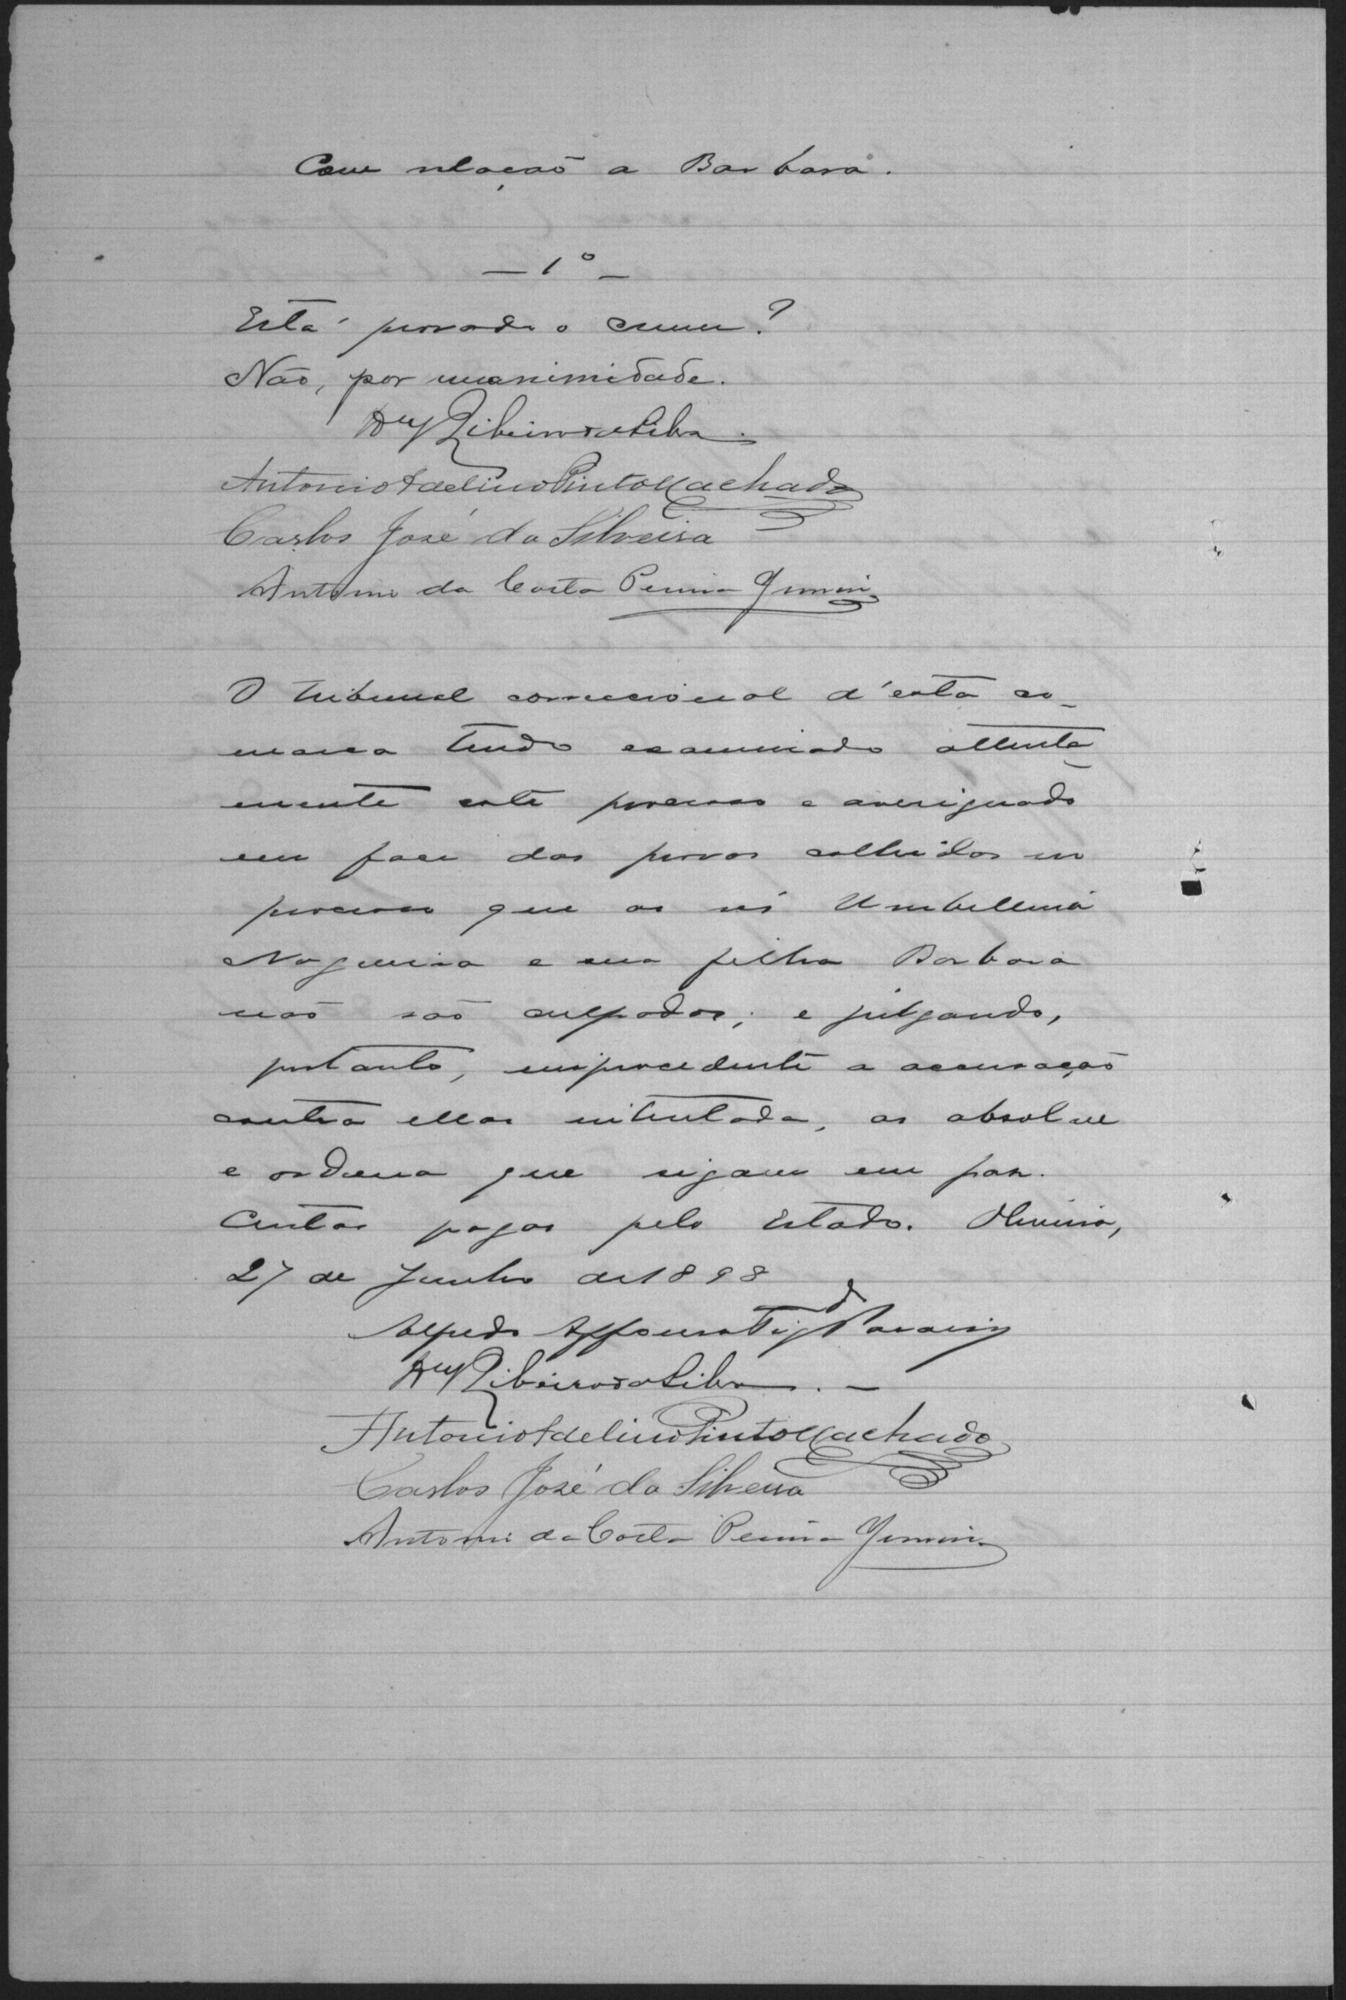 Com relação a Barbara.
— 1º —
Está provado o crime?
Não, por unanimidade.
Ribeiro da Silva.
Antonio Adelino Pinto Machado
Carlos José da Silveira
Antonio da Costa Pereira Junior
O tribunal correccional d'esta co-
marca tendo examinado attenta-
mente este processo e averiguado
em face das provas colhidas no
processo que as rés Umbellina
Nogueira e sua filha Barbara
não são culpadas; e julgando,
portanto, improcedente a accusação
contra ellas intentada, as absolve
e ordena que sigam em paz.
Custas pagas pelo Estado. Oliveira,
27 de Junho de 1898
Alfredo
Ribeiro da Silva. —
Antonio Adelino Pinto Machado
Carlos José da Silveira
Antonio da Costa Pereira Junior